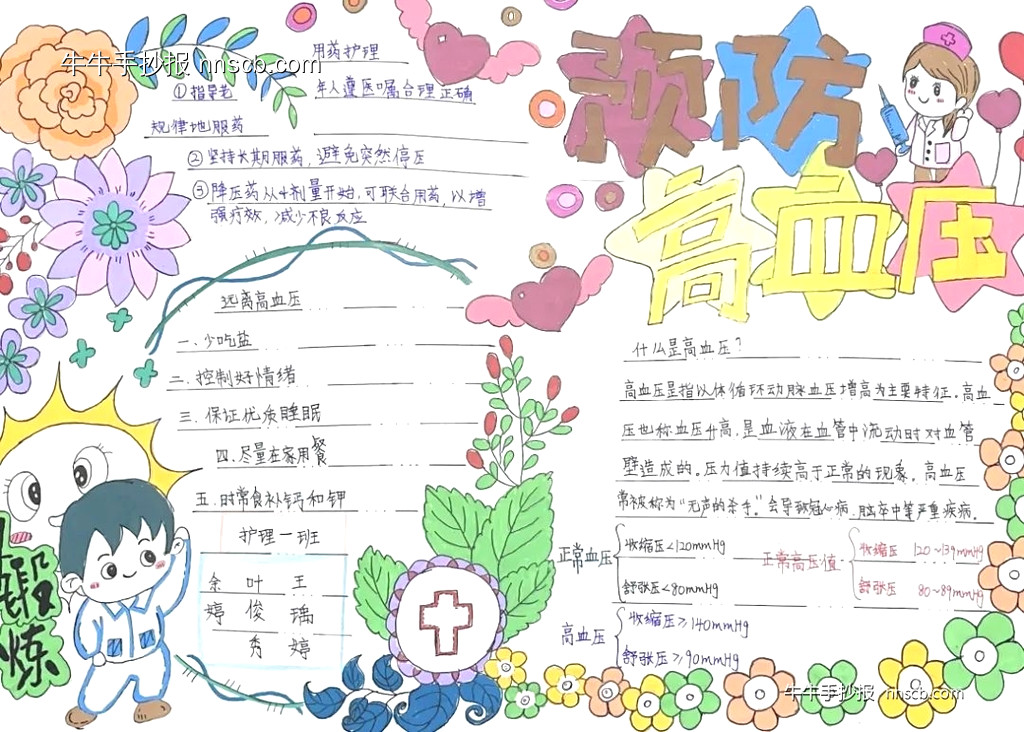 牛牛手抄报 hnscb.com
预防
高血压
用药护理
①指导老 年人遵医属合理正确
规律地服药
②坚持长期服药，避免突然停压
③降压药从小剂量开始，可联合用药，以增
强疗效，减少不良反应
远离高血压
一.少吃盐
二.控制好情绪
三.保证优质睡眠
四.尽量在家用餐
五.时常食补钙和钾
护理一班
余 叶 王
婷 俊 瑀
秀 婷
锻
炼
什么是高血压？
高血压是指以体循环动脉血压增高为主要特征。高血
压也称血压升高，是血液在血管中流动时对血管
壁造成的。压力值持续高于正常的现象。高血压
常被称为“无声的杀手。”会导致冠心病、脑卒中等严重疾病。
正常血压 收缩压<120mmHg
舒张压<80mmHg
正常高压值 收缩压 120~139mmHg
舒张压 80~89mmHg
高血压 收缩压≥140mmHg
舒张压≥90mmHg
牛牛手抄报 hnscb.com